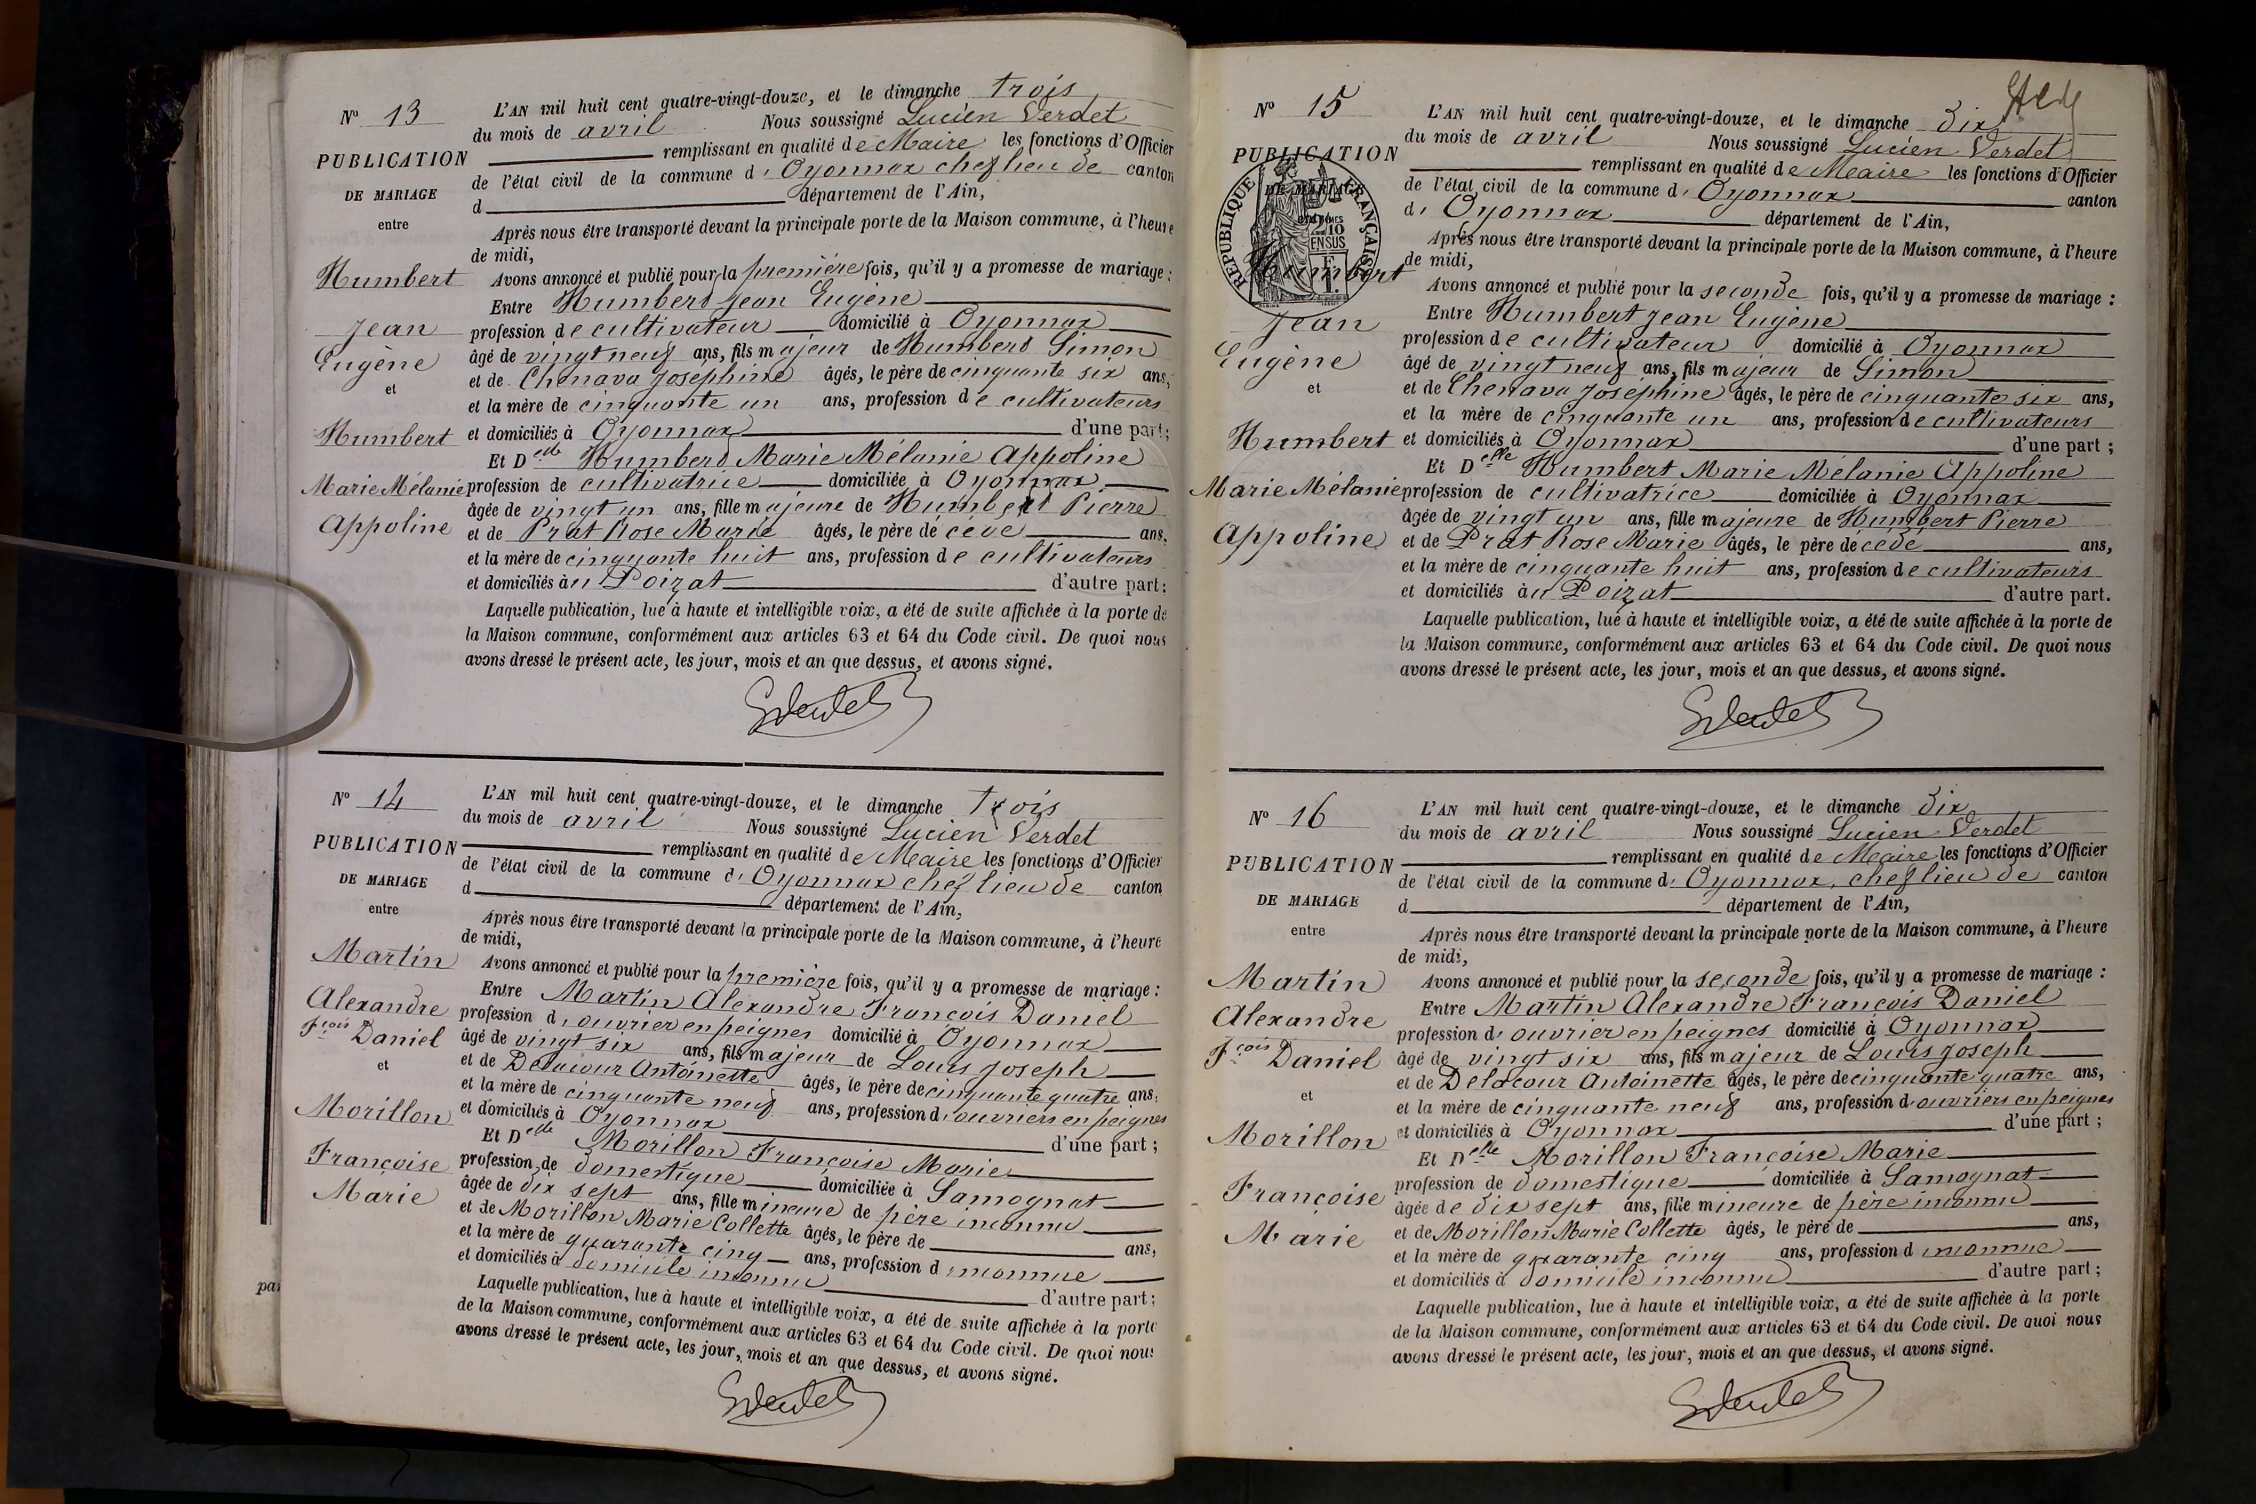 N° 13
PUBLICATION
DE MARIAGE
entre
Humbert
Jean
Eugène
et
Humbert
Marie Mélanie
Appoline
L'AN mil huit cent quatre-vingt-douze, et le dimanche trois
du mois de avril Nous soussigné Lucien Verdet
remplissant en qualité de Maire les fonctions d'Officier
de l'état civil de la commune d' Oyonnax chef lieu de canton
d département de l'Ain,
Après nous être transporté devant la principale porte de la Maison commune, à l'heure
de midi,
Avons annoncé et publié pour la première fois, qu'il y a promesse de mariage :
Entre Humbert Jean Eugène
profession de cultivateur domicilié à Oyonnax
âgé de vingt neuf ans, fils majeur de Humbert Simon
et de Chenava Joséphine âgés, le père de cinquante six ans,
et la mère de cinquante un ans, profession de cultivateurs
et domiciliés à Oyonnax d'une part;
Et Delle Humbert Marie Mélanie Appoline
profession de cultivatrice domiciliée à Oyonnax
âgée de vingt un ans, fille majeure de Humbert Pierre
et de Prat Rose Marie âgés, le père décédé ans,
et la mère de cinquante huit ans, profession de cultivateurs
et domiciliés au Poizat d'autre part;
Laquelle publication, lue à haute et intelligible voix, a été de suite affichée à la porte de
la Maison commune, conformément aux articles 63 et 64 du Code civil. De quoi nous
avons dressé le présent acte, les jour, mois et an que dessus, et avons signé.
N° 14
PUBLICATION
DE MARIAGE
entre
Martin
Alexandre
Fcois Daniel
et
Morillon
Françoise
Marie
L'AN mil huit cent quatre-vingt-douze, et le dimanche trois
du mois de avril Nous soussigné Lucien Verdet
remplissant en qualité de Maire les fonctions d'Officier
de l'état civil de la commune d' Oyonnax chef lieu de canton
d département de l'Ain,
Après nous être transporté devant la principale porte de la Maison commune, à l'heure
de midi,
Avons annoncé et publié pour la première fois, qu'il y a promesse de mariage :
Entre Martin Alexandre François Daniel
profession d' ouvrier en peignes domicilié à Oyonnax
âgé de vingt six ans, fils majeur de Louis Joseph
et de Delacour Antoinette âgés, le père de cinquante quatre ans,
et la mère de cinquante neuf ans, profession d' ouvriers en peignes
et domiciliés à Oyonnax d'une part ;
Et Delle Morillon Françoise Marie
profession de domestique domiciliée à Samognat
âgée de dix sept ans, fille mineure de père inconnu
et de Morillon Marie Collette âgés, le père de ans,
et la mère de quarante cinq ans, profession d inconnue
et domiciliés à domicile inconnu d'autre part ;
Laquelle publication, lue à haute et intelligible voix, a été de suite affichée à la porte
de la Maison commune, conformément aux articles 63 et 64 du Code civil. De quoi nous
avons dressé le présent acte, les jour, mois et an que dessus, et avons signé.
N° 15
PUBLICATION
DE MARIAGE
RÉPUBLIQUE FRANÇAISE
Humbert
Jean
Eugène
et
Humbert
Marie Mélanie
Appoline
L'AN mil huit cent quatre-vingt-douze, et le dimanche dix
du mois de avril Nous soussigné Lucien Verdet
remplissant en qualité de Maire les fonctions d'Officier
de l'état civil de la commune d' Oyonnax canton
d' Oyonnax département de l'Ain,
Après nous être transporté devant la principale porte de la Maison commune, à l'heure
de midi,
Avons annoncé et publié pour la seconde fois, qu'il y a promesse de mariage :
Entre Humbert Jean Eugène
profession de cultivateur domicilié à Oyonnax
âgé de vingt neuf ans, fils majeur de Simon
et de Chenava Joséphine âgés, le père de cinquante six ans,
et la mère de cinquante un ans, profession de cultivateurs
et domiciliés à Oyonnax d'une part ;
Et Delle Humbert Marie Mélanie Appoline
profession de cultivatrice domiciliée à Oyonnax
âgée de vingt un ans, fille majeure de Humbert Pierre
et de Prat Rose Marie âgés, le père décédé ans,
et la mère de cinquante huit ans, profession de cultivateurs
et domiciliés au Poizat d'autre part.
Laquelle publication, lue à haute et intelligible voix, a été de suite affichée à la porte de
la Maison commune, conformément aux articles 63 et 64 du Code civil. De quoi nous
avons dressé le présent acte, les jour, mois et an que dessus, et avons signé.
N° 16
PUBLICATION
DE MARIAGE
entre
Martin
Alexandre
Fcois Daniel
et
Morillon
Françoise
Marie
L'AN mil huit cent quatre-vingt-douze, et le dimanche dix
du mois de avril Nous soussigné Lucien Verdet
remplissant en qualité de Maire les fonctions d'Officier
de l'état civil de la commune d' Oyonnax, chef lieu de canton
d département de l'Ain,
Après nous être transporté devant la principale porte de la Maison commune, à l'heure
de midi,
Avons annoncé et publié pour la seconde fois, qu'il y a promesse de mariage :
Entre Martin Alexandre François Daniel
profession d' ouvrier en peignes domicilié à Oyonnax
âgé de vingt six ans, fils majeur de Louis Joseph
et de Delacour Antoinette âgés, le père de cinquante quatre ans,
et la mère de cinquante neuf ans, profession d' ouvriers en peignes
et domiciliés à Oyonnax d'une part ;
Et Delle Morillon Françoise Marie
profession de domestique domiciliée à Samognat
âgée de dix sept ans, fille mineure de père inconnu
et de Morillon Marie Collette âgés, le père de ans,
et la mère de quarante cinq ans, profession d inconnue
et domiciliés à domicile inconnu d'autre part ;
Laquelle publication, lue à haute et intelligible voix, a été de suite affichée à la porte
de la Maison commune, conformément aux articles 63 et 64 du Code civil. De quoi nous
avons dressé le présent acte, les jour, mois et an que dessus, et avons signé.